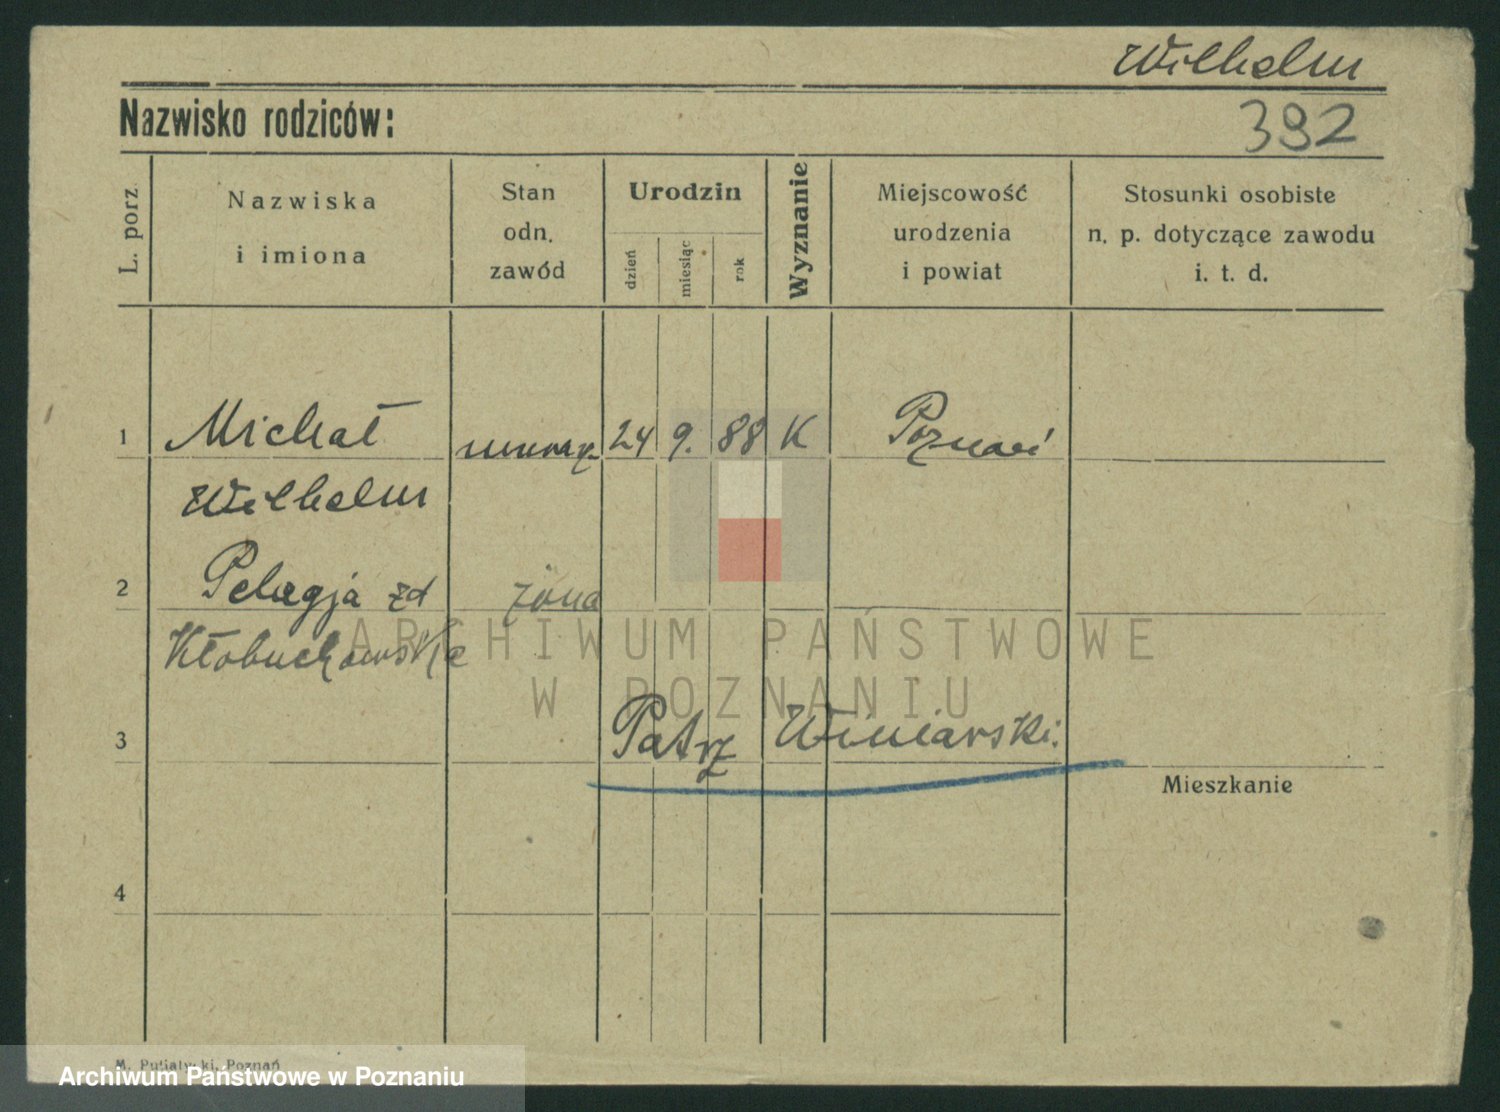 Wilhelm
Nazwisko rodziców:
392
L. porz.
Nazwiska
i imiona
Stan
odn.
zawód
Urodzin
dzień
miesiąc
rok
Wyznanie
Miejscowość
urodzenia
i powiat
Stosunki osobiste
n. p. dotyczące zawodu
i. t. d.
1 Michał 24 9. 88 K Poznań
Wilhelm
2 Pelagja zd żona
Kłobuchowskie
ARCHIWUM PAŃSTWOWE
W POZNANIU
3 Patrz Winiarski.
Mieszkanie
4
M. Putiatycki, Poznań
Archiwum Państwowe w Poznaniu